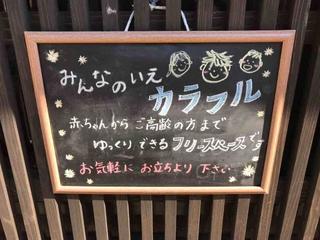 みんなのいえ
カラフル
赤ちゃんから ご高齢の方まで
ゆっくり できる フリースペースです
お気軽に お立ちより 下さい